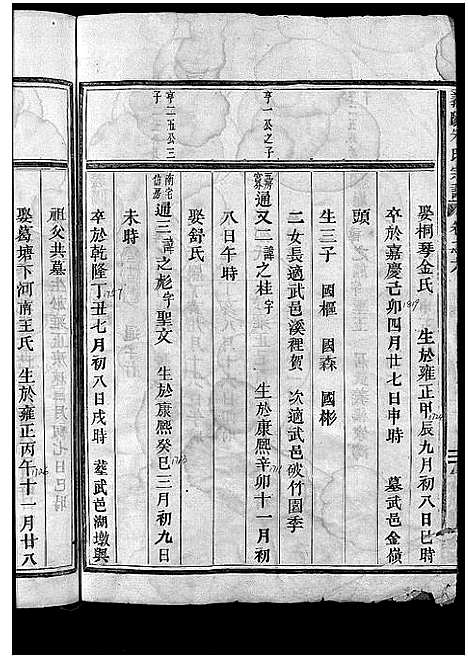 娶桐琴金氏 生於雍正甲辰九月初八日巳時 1724
卒於嘉慶己卯四月廿七日申時 1819 墓武邑金嶺
頭
生三子 國樞 國森 國彬
二女長適武邑溪裡賀 次適武邑破竹園季
亨一公之子
通又二諱之桂字 生於康熙辛卯十一月初 1711
八日午時
娶舒氏
亨二五公三
子
南宅
信房
通三諱之彪字聖文 生於康熙癸巳三月初九日 1713
未時
卒於乾隆丁丑七月初八日戌時 1757 葬武邑湖墩與
祖父共墓
娶葛塘下河南王氏 生於雍正丙午十一月廿八 1726